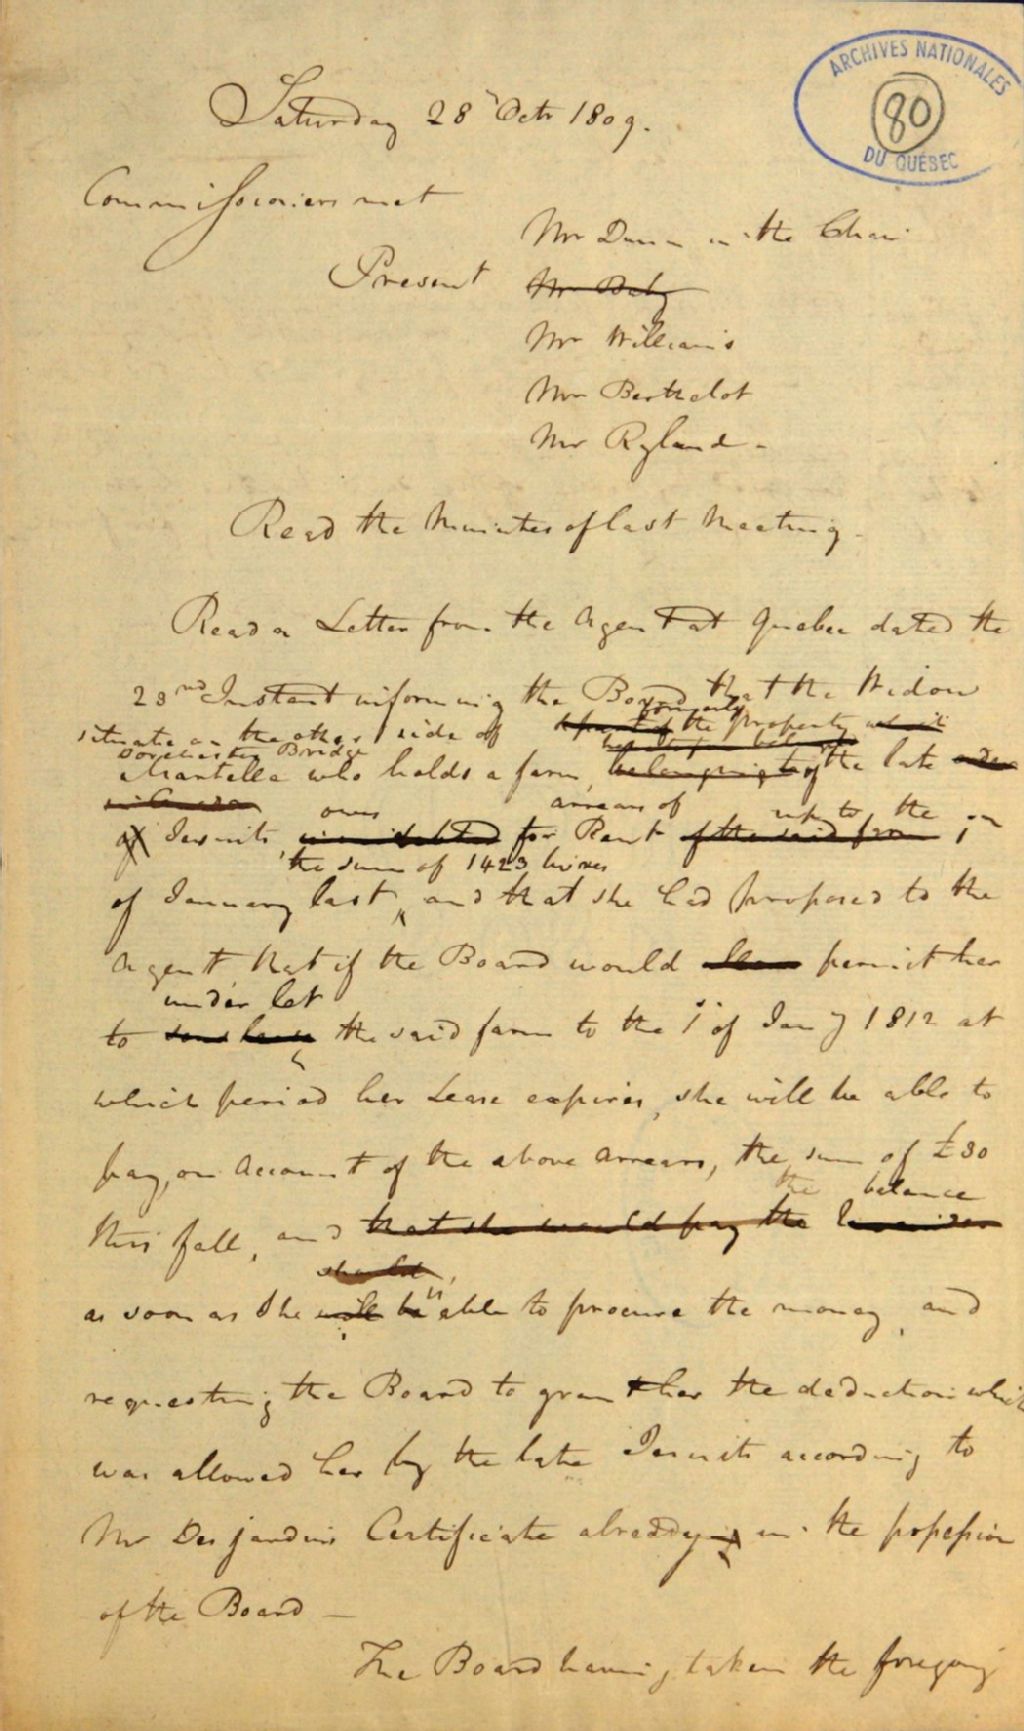 ARCHIVES NATIONALES
80
DU QUÉBEC
Saturday 28 Octr 1809.
Commissioners met
Mr Dunn in the Chair
Present
Mr Baby
Mr Williams
Mr Berthelot
Mr Ryland -
Read the Minutes of last Meeting.
Read a Letter from the Agent at Quebec dated the
23rd Instant informing the Board that the Widow
formerly
situate on the other side of the property
Dorchester Bridge
Martelle who holds a farm, belonging to of the late order
of Jesuits, owes arrears of up to the
is indebted for Rent of the said farm 1st
the sum of 1423 livres
of January last, and that she had proposed to the
Agent that if the Board would permit her
under let
to the said farm to the 1st of Jany 1812 at
which period her Lease expires, she will be able to
pay, on Account of the above Arrears, the sum of £30
the balance
this fall, and that she would pay the remainder
should
as soon as she will be is able to procure the money, and
requesting the Board to grant her the deduction which
was allowed her by the late Jesuits according to
Mr Desjardins Certificate already in the possession
of the Board —
The Board having taken the foregoing